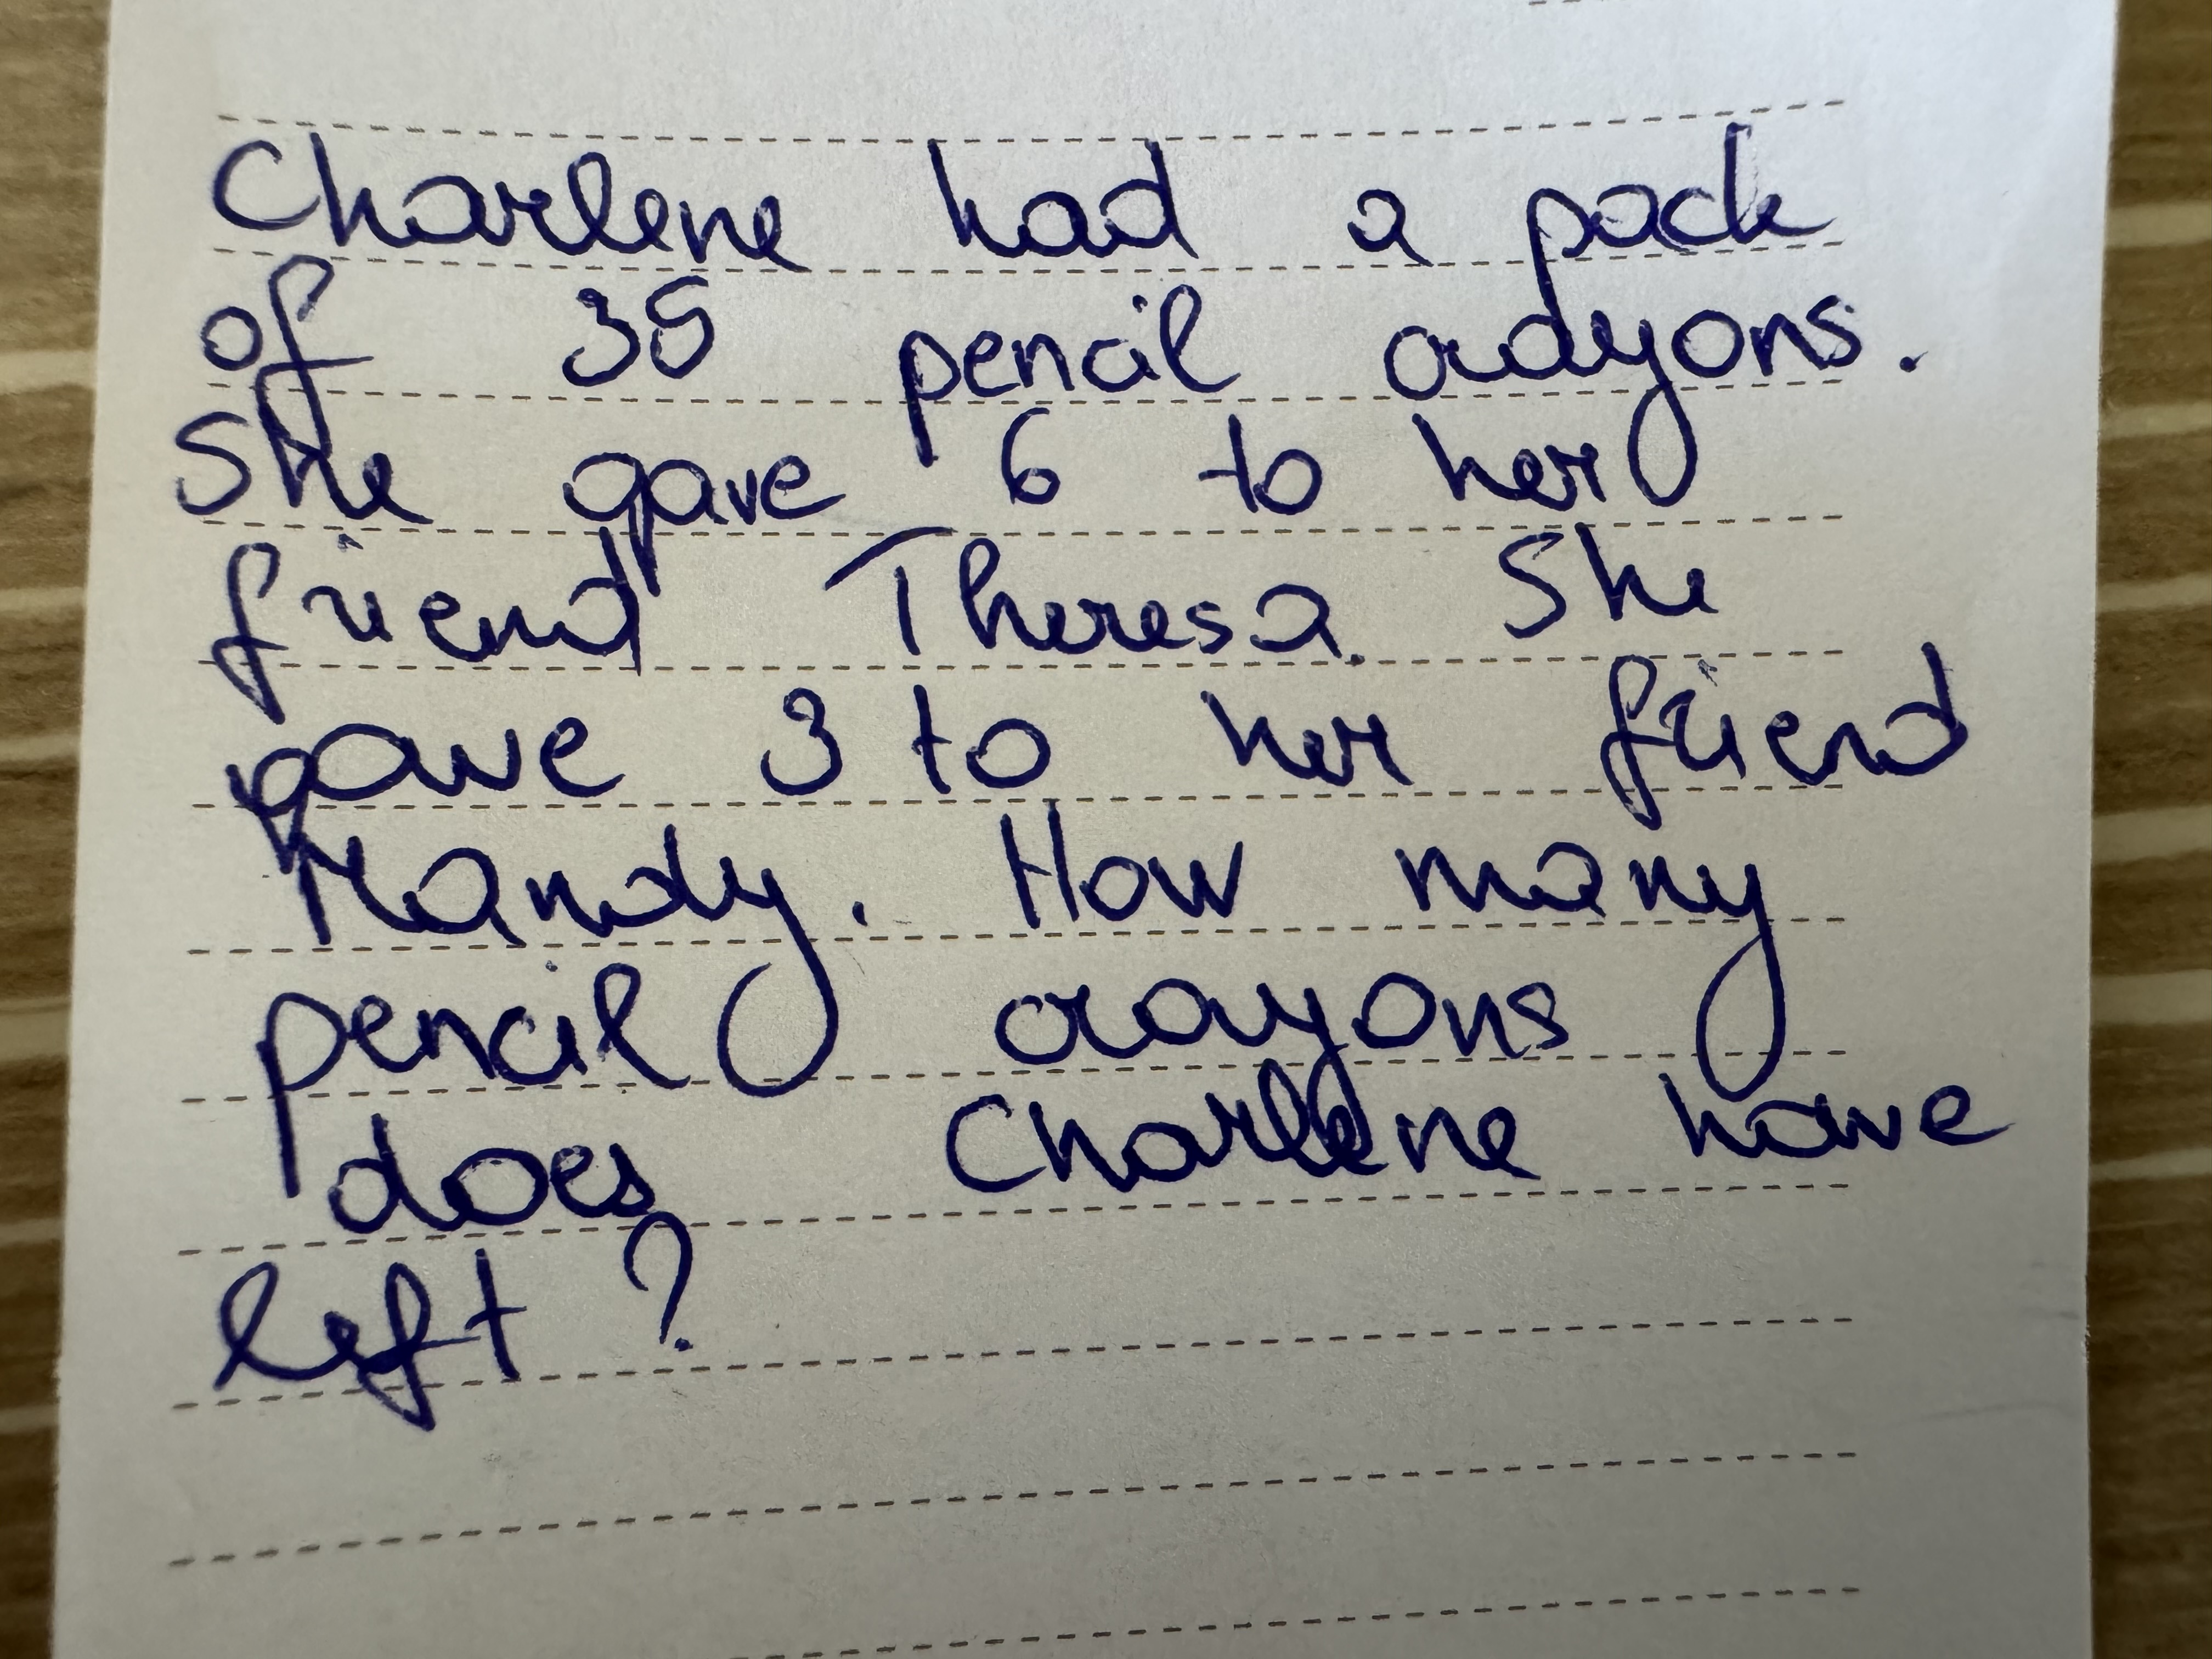 Charlene had a pack
of 35 pencil crayons.
She gave 6 to her
friend Theresa. She
gave 3 to her friend
Mandy. How many
pencil crayons
does Charlene have
left?